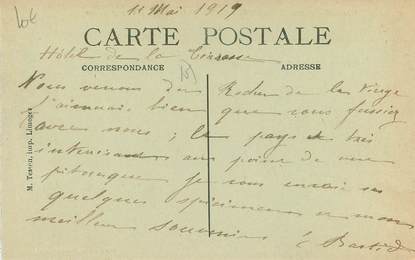 10€
11 Mai 1919
CARTE POSTALE
Hôtel de la Terrasse
CORRESPONDANCE
ADRESSE
Nous venons du Rocher de la Vierge
j'aimerais bien que vous fussiez
avec nous ; le pays très
intéressant au point de vue
pittoresque je vous envoie
quelques spécimens et mon
meilleur souvenir
M. Tesson, imp. Limoges